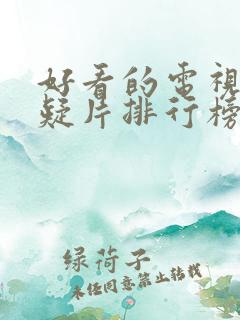 好看的電視
疑片排行榜
绿荷子
未经同意禁止转载